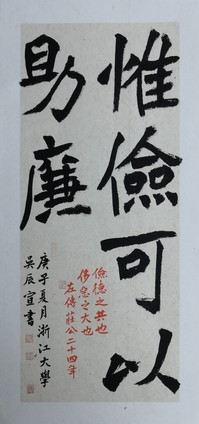 惟儉可以
助廉
儉德之共也
侈惡之大也
左傳莊公二十四年
庚子夏月浙江大學
吳辰宣書